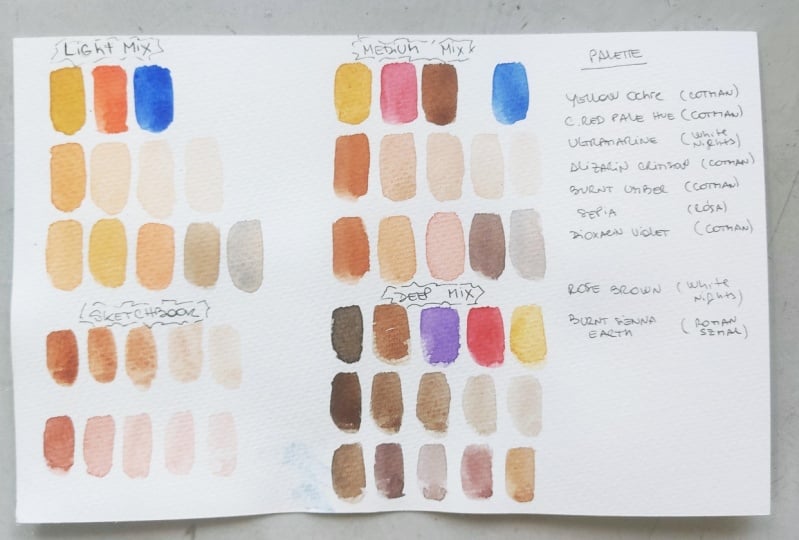 Light Mix
Medium Mix
Deep Mix
Sketchbook
Palette
Yellow Ochre (Cotman)
C. Red Pale Hue (Cotman)
Ultramarine (White
Nights)
Alizarin Crimson (Cotman)
Burnt Umber (Cotman)
Sepia (Rosa)
Dioxazin Violet (Cotman)
Rose Brown (White
Nights)
Burnt Sienna (Roman
Earth Szmal)